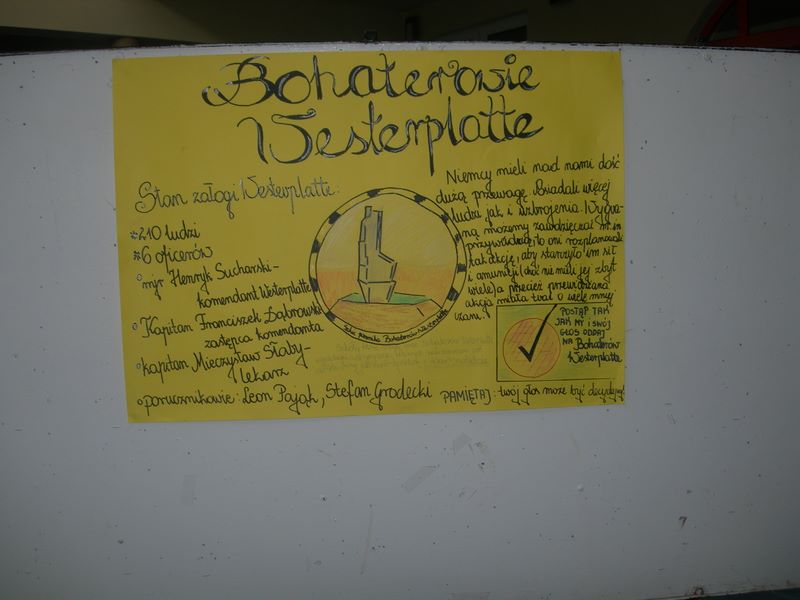 Bohaterowie
Westerplatte
Stan załogi Westerplatte:
210 ludzi
6 oficerów
mjr Henryk Sucharski-
komendant Westerplatte
Kapitan Franciszek Dąbrowski
zastępca komendanta
kapitan Mieczysław Słaby-
lekarz
porucznikowie: Leon Pająk, Stefan Grodecki
Niemcy mieli nad nami dość
dużą przewagę. Posiadali więcej
ludzi jak i uzbrojenia. Wygra-
ną możemy zawdzięczać m.in
przywódcą, to oni rozplanowali
tak akcję, aby starczyło im sił
i amunicji (choć nie mieli jej zbyt
wiele) a przecież przewidziana
akcja miała trwać o wiele mniej
czasu.
POSTĄP TAK
JAK MY I SWÓJ
GŁOS ODDAJ
NA Bohaterów
Westerplatte
PAMIĘTAJ: twój głos może być decydujący!